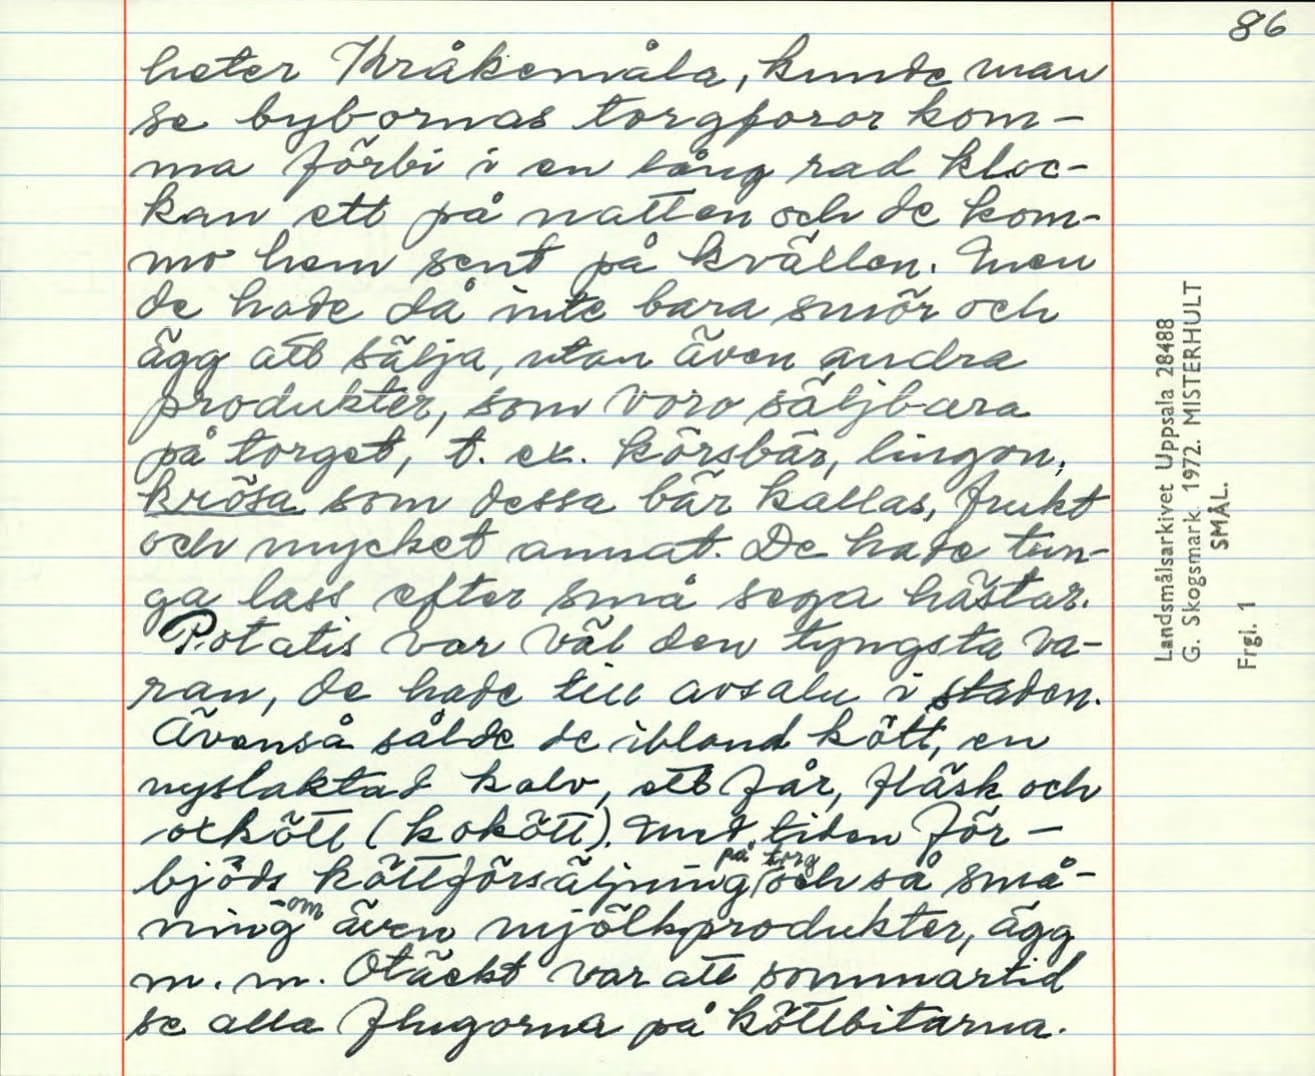 86
heter Kråkemåla, kunde man
se bybornas torgforor kom-
ma förbi i en lång rad kloc-
kan ett på natten och de kom-
mo hem sent på kvällen. Men
de hade då inte bara smör och
ägg att sälja, utan även andra
produkter, som voro säljbara
på torget, t. ex. körsbär, lingon,
krösa som dessa bär kallas, frukt
och mycket annat. De hade tun-
ga lass efter små sega hästar.
Potatis var väl den tyngsta va-
ran, de hade till avsalu i staden.
Ävenså sålde de ibland kött, en
nyslaktad kalv, ett får, fläsk och
oxkött (kokött). Med tiden för-
bjöds köttförsäljning på torg och så små-
ning-om även mjölkprodukter, ägg
m. m. Otäckt var att sommartid
se alla flugorna på köttbitarna.
Landsmålsarkivet Uppsala 28488
G. Skogsmark. 1972. MISTERHULT
SMÅL.
Frgl. 1